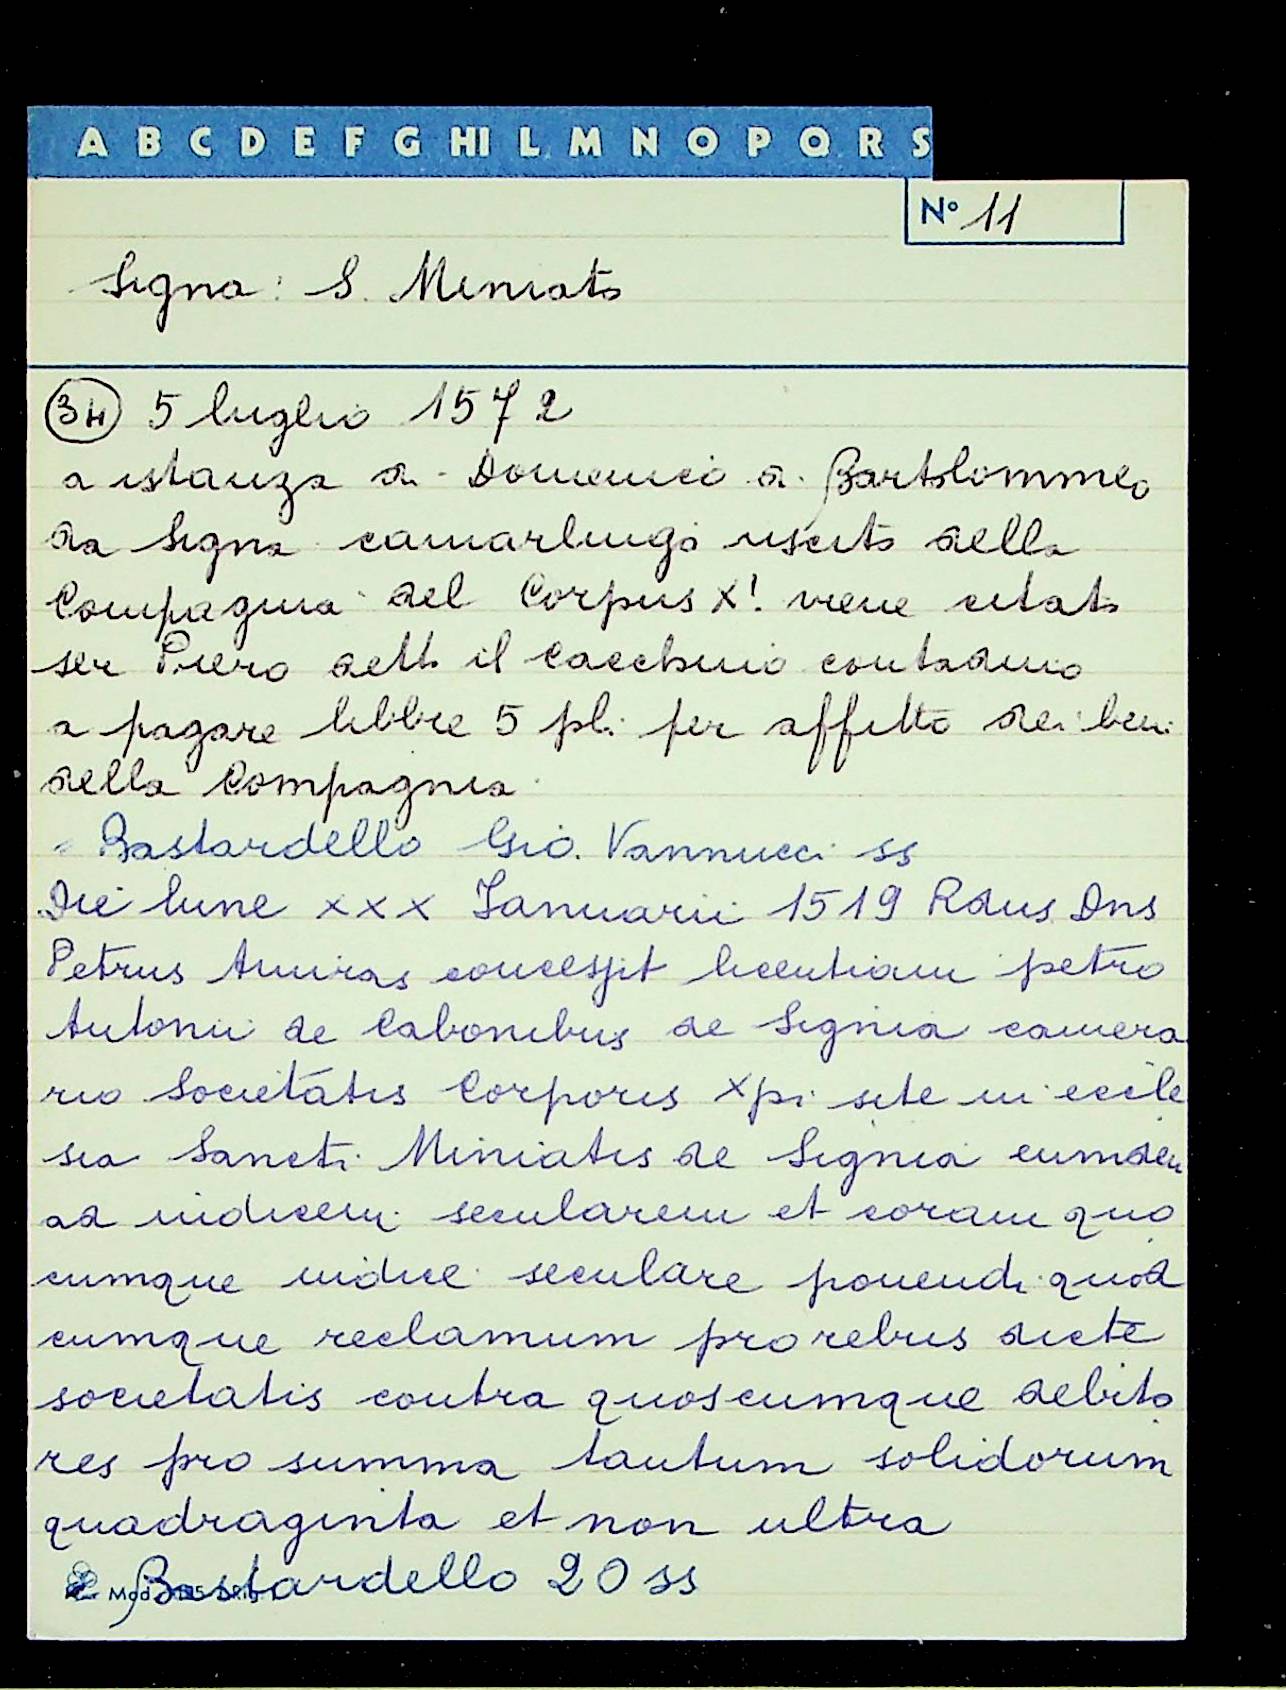 A B C D E F G HI L M N O P Q R S
N° 11
Signa: S. Miniato
34 5 luglio 1572
a istanza di Domenico di Bartolommeo
da Signa camarlingo uscito della
Compagnia del Corpus X! viene citato
ser Piero detto il Cacchino contadino
a pagare libbre 5 pli. per affitto dei beni
della Compagnia
Bastardello Gio. Vannucci ss
Die lune xxx Ianuarii 1519 Rdus Dns
Petrus concessit licentiam petro
Antonii de Cabonibus de Signia camera
rio Societatis Corporis Xpi site in eccle
sia Sancti Miniatis de Signia eumdem
ad iudicem secularem et coram quo
cumque iudice seculare ponendi quod
cumque reclamum pro rebus dicte
societatis contra quoscumque debito
res pro summa tantum solidorum
quadraginta et non ultra
Bastardello 20 ss